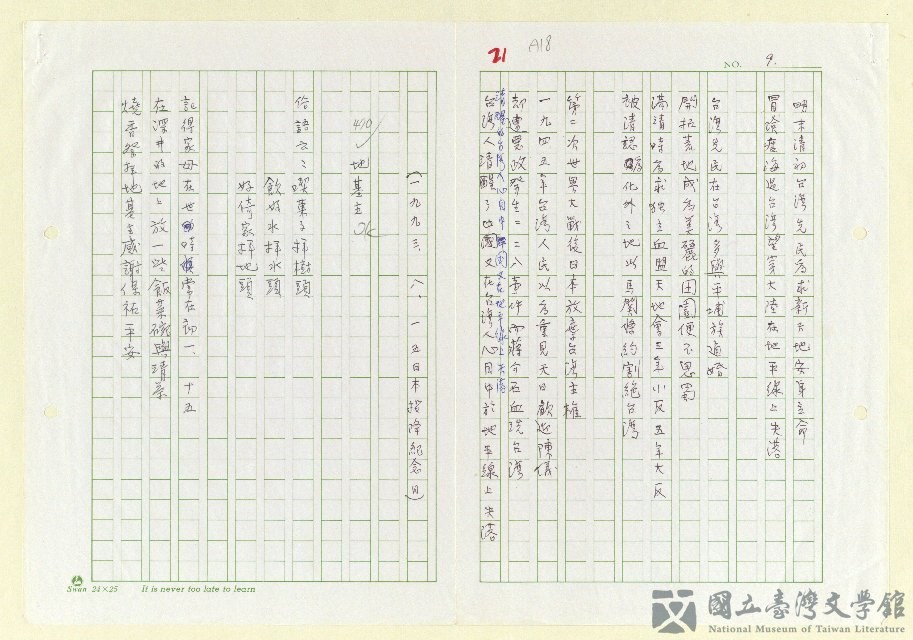 21
A18
NO. 9.
明末清初台灣先民為求新天地安身立命
冒險渡海過台灣望穿大陸在地平線上失落
台灣先民在台灣多與平埔族通婚
開拓荒地成為美麗的田園便不思蜀
滿清時為求獨立血盟天地會三年小反五年大反
被清認為化外之地以馬關條約割絕台灣
第二次世界大戰後日本放棄台灣主權
一九四五年台灣人民以為重見天日歡迎陳儀
却遭受政發生二二八事件而蔣介石血洗台灣
台灣人清醒了地圖又在台灣人心目中於地平線上失落
(一九九三、八、一五日本投降紀念日)
490
地基主 OK
俗語云:喫菓子拜樹頭
飲好水拜水頭
好倚家拜地頭
記得家母在世時常在初一、十五
在深井的地上放一些飯菜碗與清茶
燒香祭拜地基主感謝保祐平安
Swan 24×25 It is never too late to learn
國立臺灣文學館
National Museum of Taiwan Literature